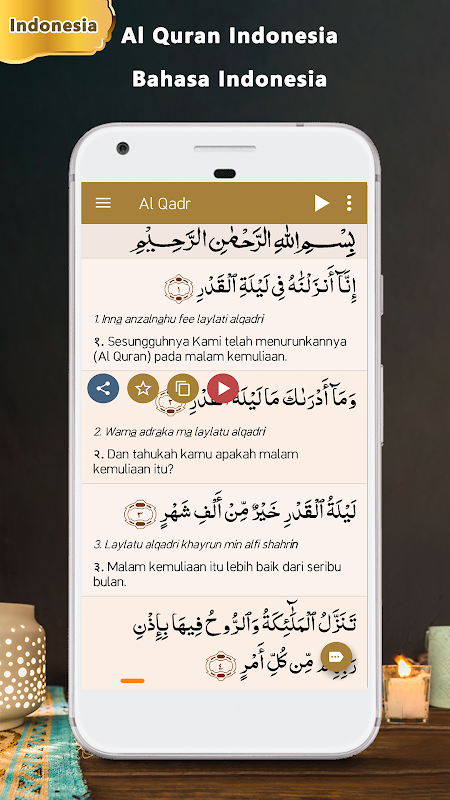 Indonesia
Al Quran Indonesia
Bahasa Indonesia
Al Qadr
بِسْمِ اللهِ الرَّحْمٰنِ الرَّحِيْمِ
إِنَّآ أَنزَلْنَٰهُ فِى لَيْلَةِ ٱلْقَدْرِ ١
1. Inna anzalnahu fee laylati alqadri
१. Sesungguhnya Kami telah menurunkannya
(Al Quran) pada malam kemuliaan.
وَمَآ أَدْرَىٰكَ مَا لَيْلَةُ ٱلْقَدْرِ ٢
2. Wama adraka ma laylatu alqadri
२. Dan tahukah kamu apakah malam
kemuliaan itu?
لَيْلَةُ ٱلْقَدْرِ خَيْرٌ مِّنْ أَلْفِ شَهْرٍ ٣
3. Laylatu alqadri khayrun min alfi shahrin
३. Malam kemuliaan itu lebih baik dari seribu
bulan.
تَنَزَّلُ ٱلْمَلَٰٓئِكَةُ وَٱلرُّوحُ فِيهَا بِإِذْنِ
رَبِّهِم مِّن كُلِّ أَمْرٍ ٤